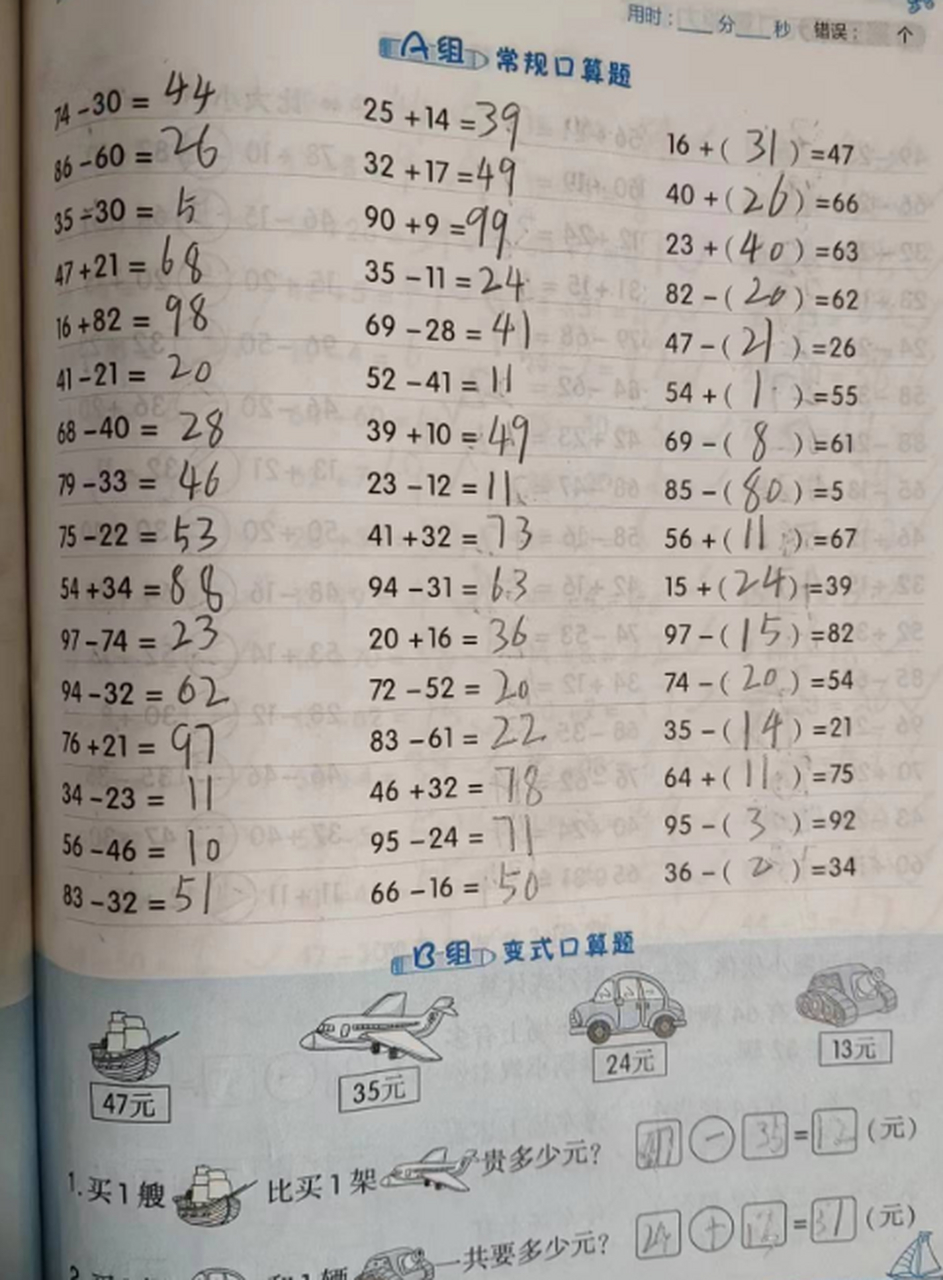 用时：___分___秒 错误： 个
A组 常规口算题
74-30=44 25+14=39 16+(31)=47
86-60=26 32+17=49 40+(26)=66
35-30=5 90+9=99 23+(40)=63
47+21=68 35-11=24 82-(20)=62
16+82=98 69-28=41 47-(21)=26
41-21=20 52-41=11 54+(1)=55
68-40=28 39+10=49 69-(8)=61
79-33=46 23-12=11 85-(80)=5
75-22=53 41+32=73 56+(11)=67
54+34=88 94-31=63 15+(24)=39
97-74=23 20+16=36 97-(15)=82
94-32=62 72-52=20 74-(20)=54
76+21=97 83-61=22 35-(14)=21
34-23=11 46+32=78 64+(11)=75
56-46=10 95-24=71 95-(3)=92
83-32=51 66-16=50 36-(2)=34
B组 变式口算题
47元 35元 24元 13元
1.买1艘 比买1架 贵多少元？ 47-35=12(元)
和1辆 一共要多少元？ 24+13=37(元)